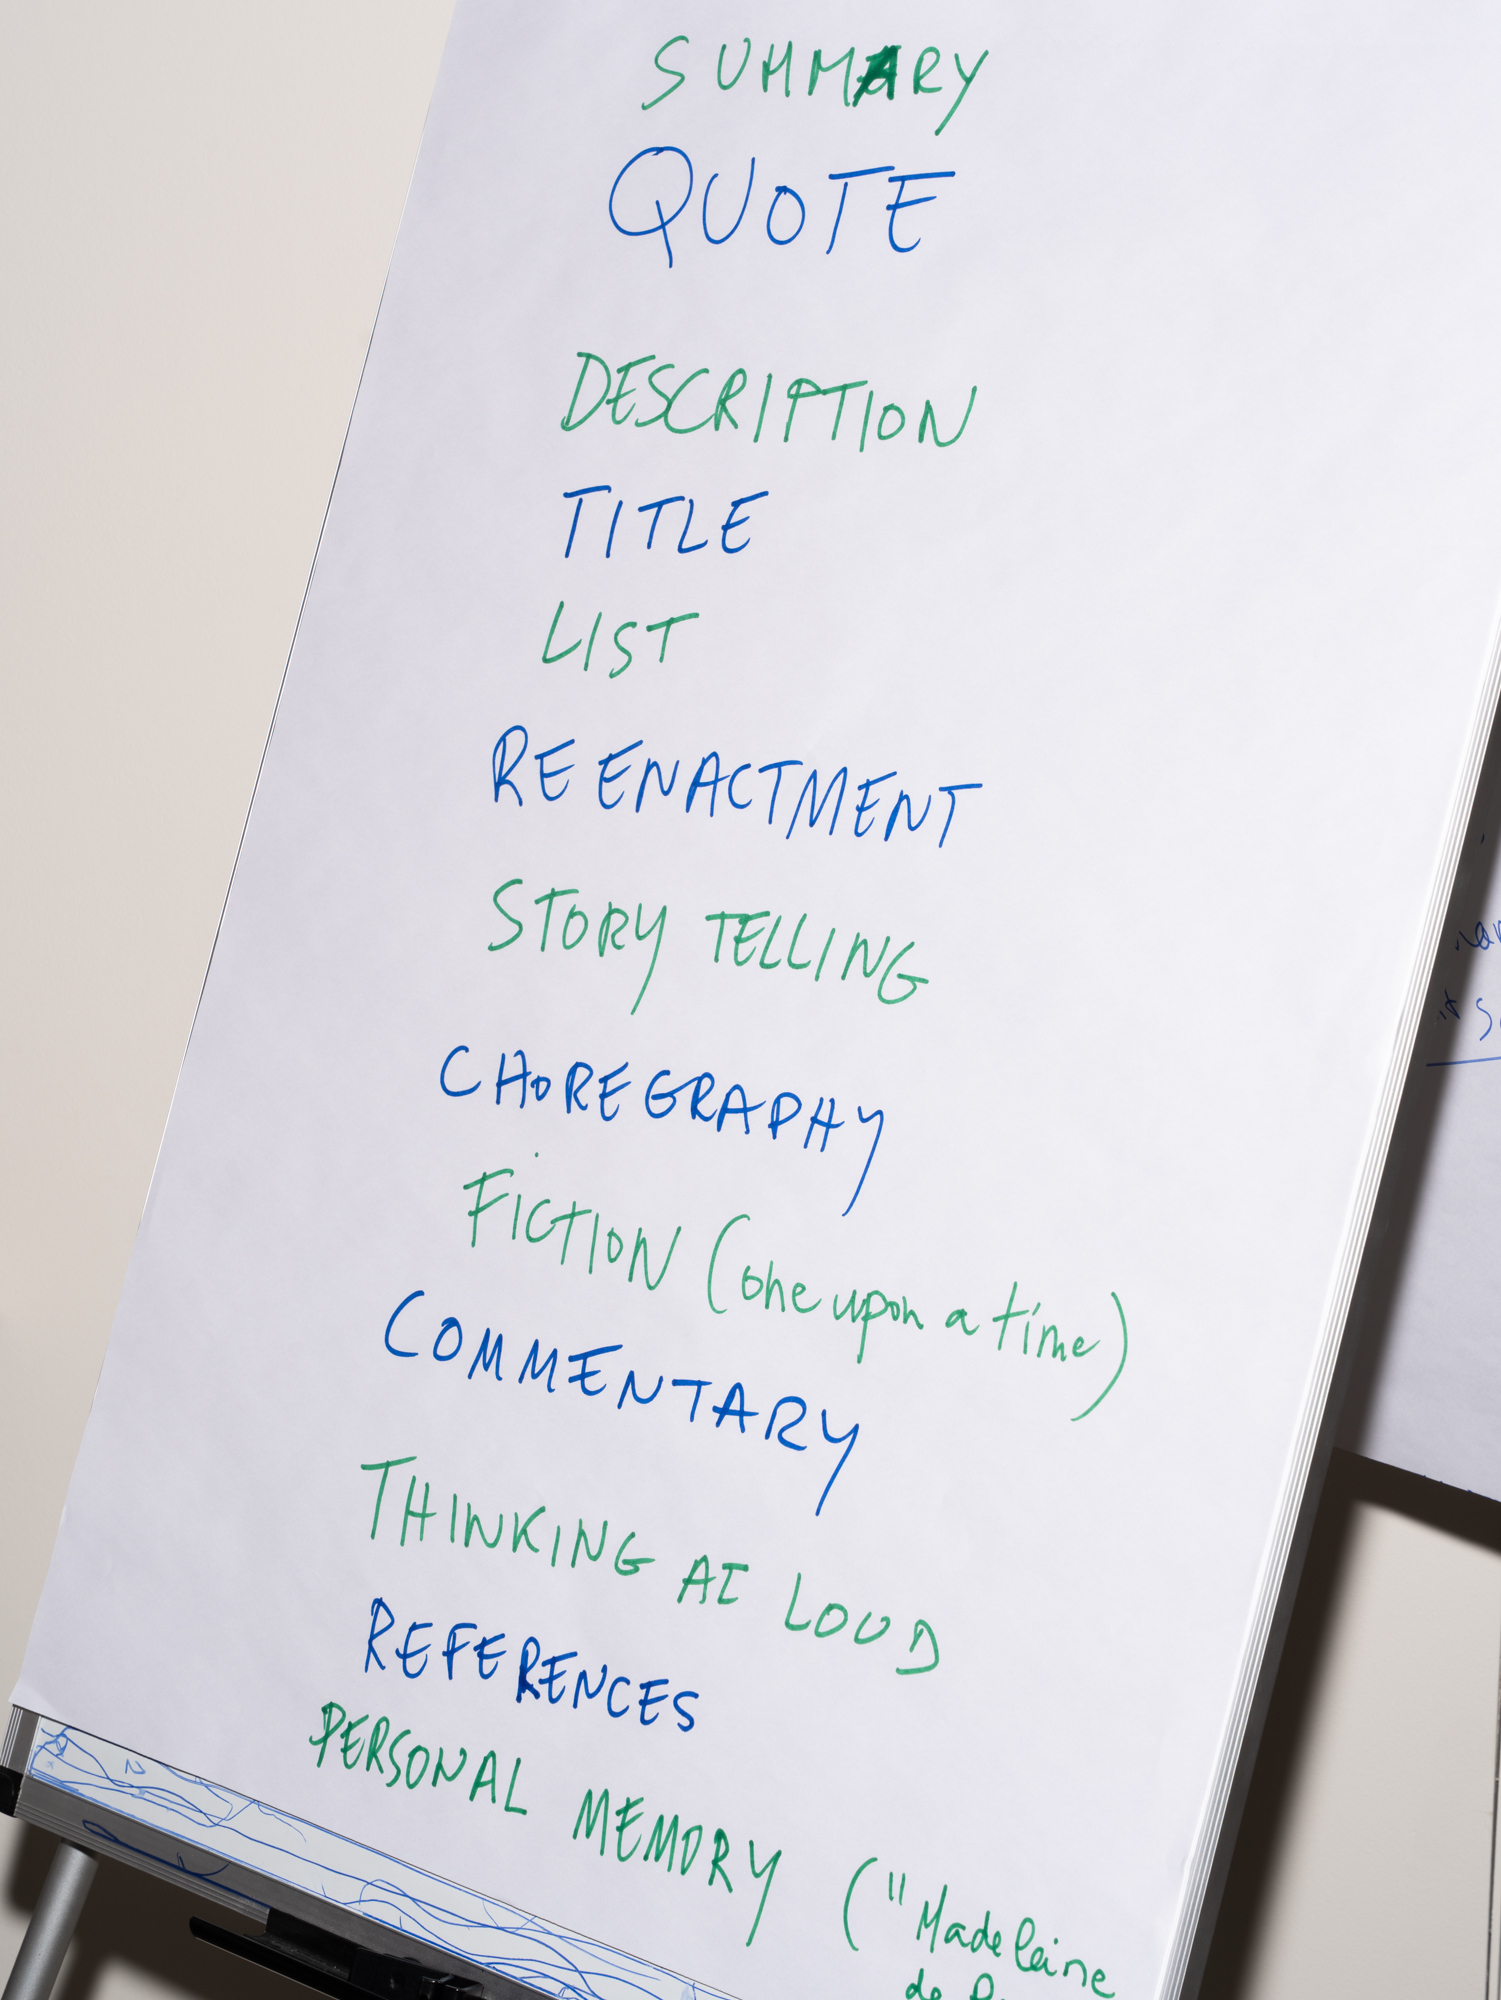 SUMMARY
QUOTE
DESCRIPTION
TITLE
LIST
REENACTMENT
STORY TELLING
CHOREGRAPHY
FICTION (one upon a time)
COMMENTARY
THINKING AI LOUD
REFERENCES
PERSONAL MEMORY ("Madeleine
de